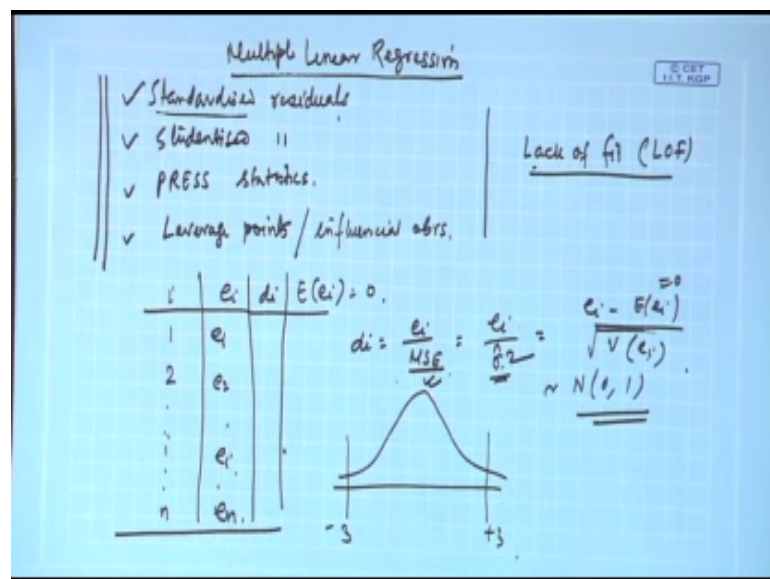 Multiple Linear Regression
© CET
I.I.T. KGP
✓ Standardized residuals
✓ Studentised 11
✓ PRESS statistics.
✓ Leverage points / influencial obvs.
Lack of fit (LOF)
i | ei | di | E(ei) = 0.
1 e1
2 e2
i ei
n en.
di = ei / MSE = ei / σ̂2 = ei - E(ei) / √V(ei)
=0
~ N(0, 1)
-3 +3